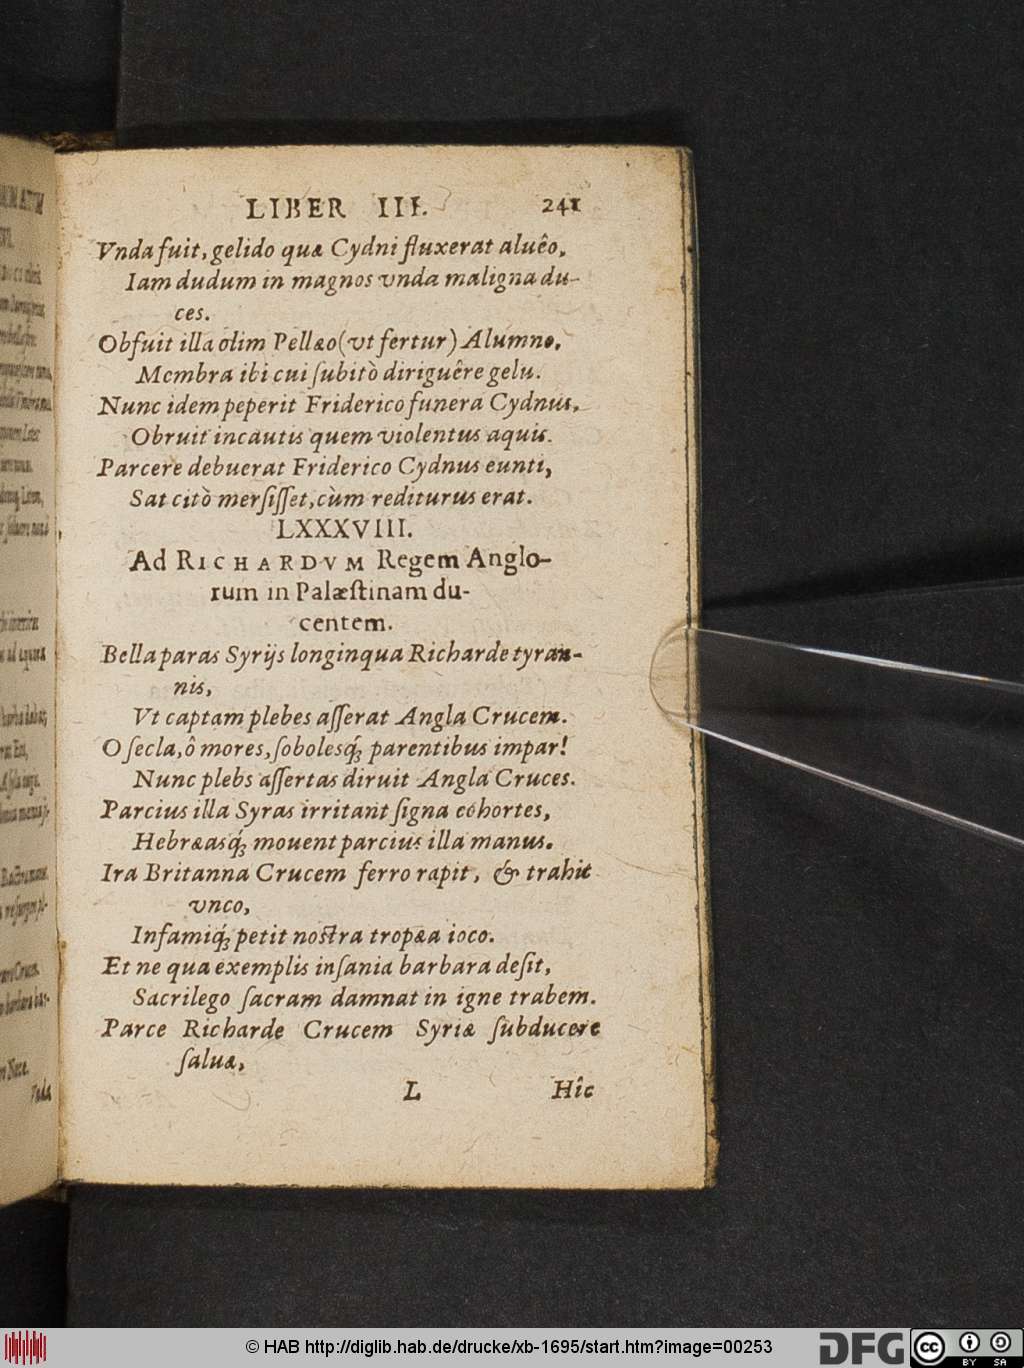 LIBER III. 241
Vnda fuit, gelido quæ Cydni fluxerat aluêo,
Iam dudum in magnos vnda maligna du-
ces.
Obfuit illa olim Pellæo (vt fertur) Alumno,
Membra ibi cui ſubitò diriguêre gelu.
Nunc idem peperit Friderico funera Cydnus,
Obruit incautis quem violentus aquis.
Parcere debuerat Friderico Cydnus eunti,
Sat citò merſiſſet, cùm rediturus erat.
LXXXVIII.
Ad RICHARDVM Regem Anglo-
rum in Palæſtinam du-
centem.
Bella paras Syrijs longinqua Richarde tyran-
nis,
Vt captam plebes aſſerat Angla Crucem.
O ſecla, ô mores, ſobolesq́ꝫ parentibus impar!
Nunc plebs aſſertas diruit Angla Cruces.
Parcius illa Syras irritant ſigna cohortes,
Hebræasq́ꝫ mouent parcius illa manus.
Ira Britanna Crucem ferro rapit, & trahit
vnco,
Infamiq́ꝫ petit noſtra tropæa ioco.
Et ne qua exemplis inſania barbara deſit,
Sacrilego ſacram damnat in igne trabem.
Parce Richarde Crucem Syriæ ſubducere
ſaluæ,
L Hîc
Vnda
© HAB http://diglib.hab.de/drucke/xb-1695/start.htm?image=00253
DFG cc BY SA